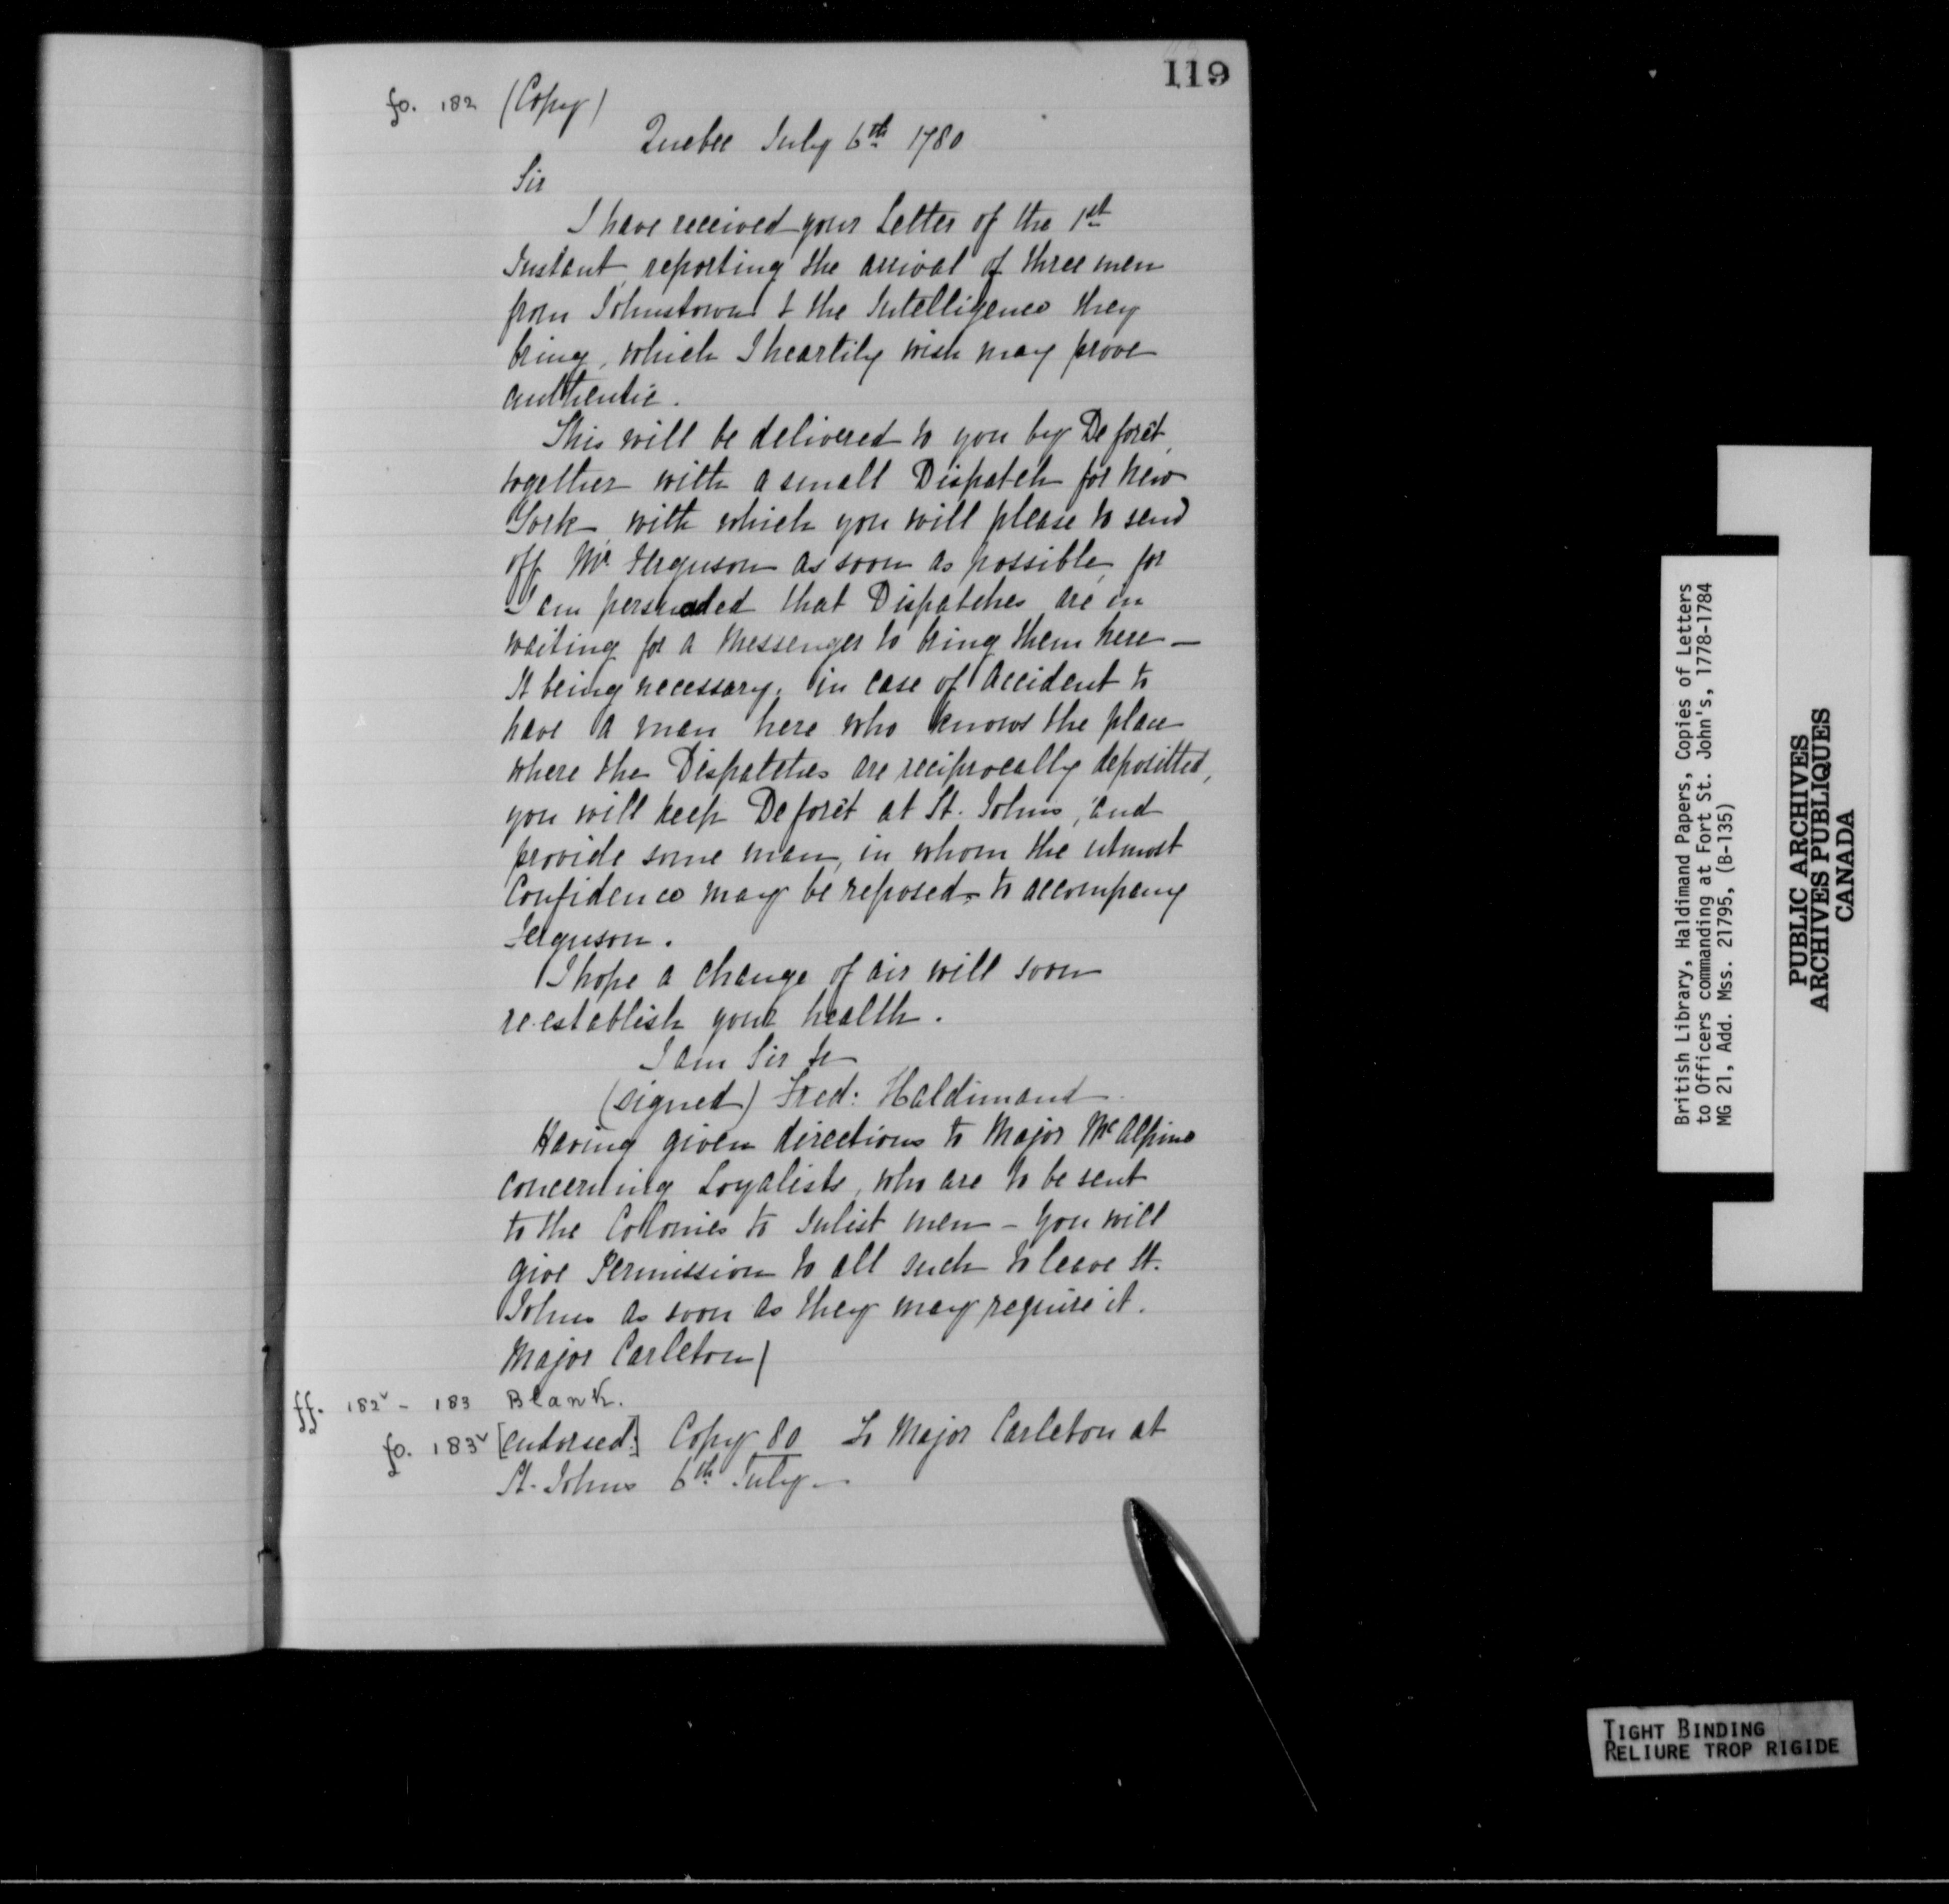 119
fo. 182 (Copy)
Quebec July 6th 1780
Sir
I have received your Letter of the 1st
Instant, reporting the arrival of three men
from Johnstown & the Intelligence they
bring, which I heartily wish may prove
authentic.
This will be delivered to you by Deforêt,
together with a small Dispatch for New
York, with which you will please to send
off Mr. Ferguson as soon as possible, for
I am persuaded that Dispatches are in
waiting for a Messenger to bring them here —
It being necessary, in case of Accident to
have a man here who knows the place
where the Dispatches are reciprocally depositted,
you will keep Deforêt at St. Johns, and
provide some man, in whom the utmost
Confidence may be reposed, to accompany
Ferguson.
I hope a change of air will soon
re-establish your health.
I am Sir &c
(signed) Fred: Haldimand.
Having given directions to Major McAlpine
concerning Loyalists, who are to be sent
to the Colonies to Inlist men — You will
give Permission to all such to leave St.
Johns as soon as they may require it.
Major Carleton)
ff. 182v - 183 Blank.
fo. 183v [endorsed:] Copy 80 To Major Carleton at
St. Johns 6th July —
British Library, Haldimand Papers, Copies of Letters
to Officers commanding at Fort St. John's, 1778-1784
MG 21, Add. Mss. 21795, (B-135)
PUBLIC ARCHIVES
ARCHIVES PUBLIQUES
CANADA
TIGHT BINDING
RELIURE TROP RIGIDE